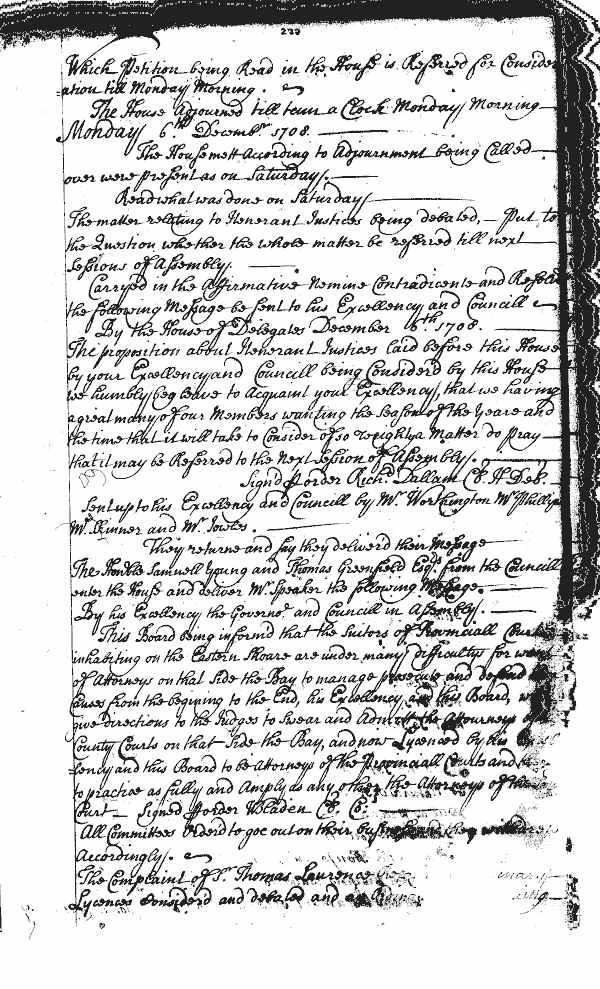 Which Petition being Read in the House is Referred for Consider
=ation till Monday Morning.
The House Adjourned till tenn a Clock Monday Morning
Monday 6th Decembr 1708.
The House mett According to Adjournment being Called
over were present as on Saturday.
Read what was done on Saturday
The matter relating to Itenerant Justices being debated, Put to
the Question whether the whole matter be referred till next
sessions of Assembly.
Carryed in the Affirmative Nemine Contradicente and Resolv
the following Message be sent to his Excellency and Councill
By the House of Delegates December 6th 1708.
The proposition about Itenerant Justices laid before this House
by your Excellency and Councill being Considerd by this House
we humbly beg leave to Acquaint your Excellency, that we having
a great many of our Members wanting the season of the yeare and
the time that it will take to Consider of so weighty a Matter do pray
that it may be Referred to the Next Session of Assembly.
Signd p order Richd Dallam Cl. H Del.
Sent up to his Excellency and Councill by Mr. Workington Mr Phillips
Mr. Skinner and Mr. Jowles.
They returne and say they deliverd their Message
The Honble Samuell Young and Thomas Greenfield Esqrs from the Councill
enter the House and deliver Mr Speaker the following Message.
By his Excellency the Governor and Councill in Assembly.
This Board being inform'd that the Suitors of Provinciall Court
inhabiting on the Eastern Shoare are under many Difficultys for want
of Attorneys on that side the Bay to manage prosecute and defend
Causes from the begining to the End, his Excellency and this Board,
give directions to the Judges to Swear and Admitt the Attourneys of
County Courts on that Side the Bay, and now Lycenced by his
=lency and this Board to be Attorneys of the Provinciall Courts and
to practice as fully and Amply as any other the Attorneys of the
Court Signed p order W Bladen Cl. C.
All Committees Orderd to goe out on their business and they withdrew
Accordingly.
The Complaint of Sr. Thomas Laurence
Lycences Considerd and debated and